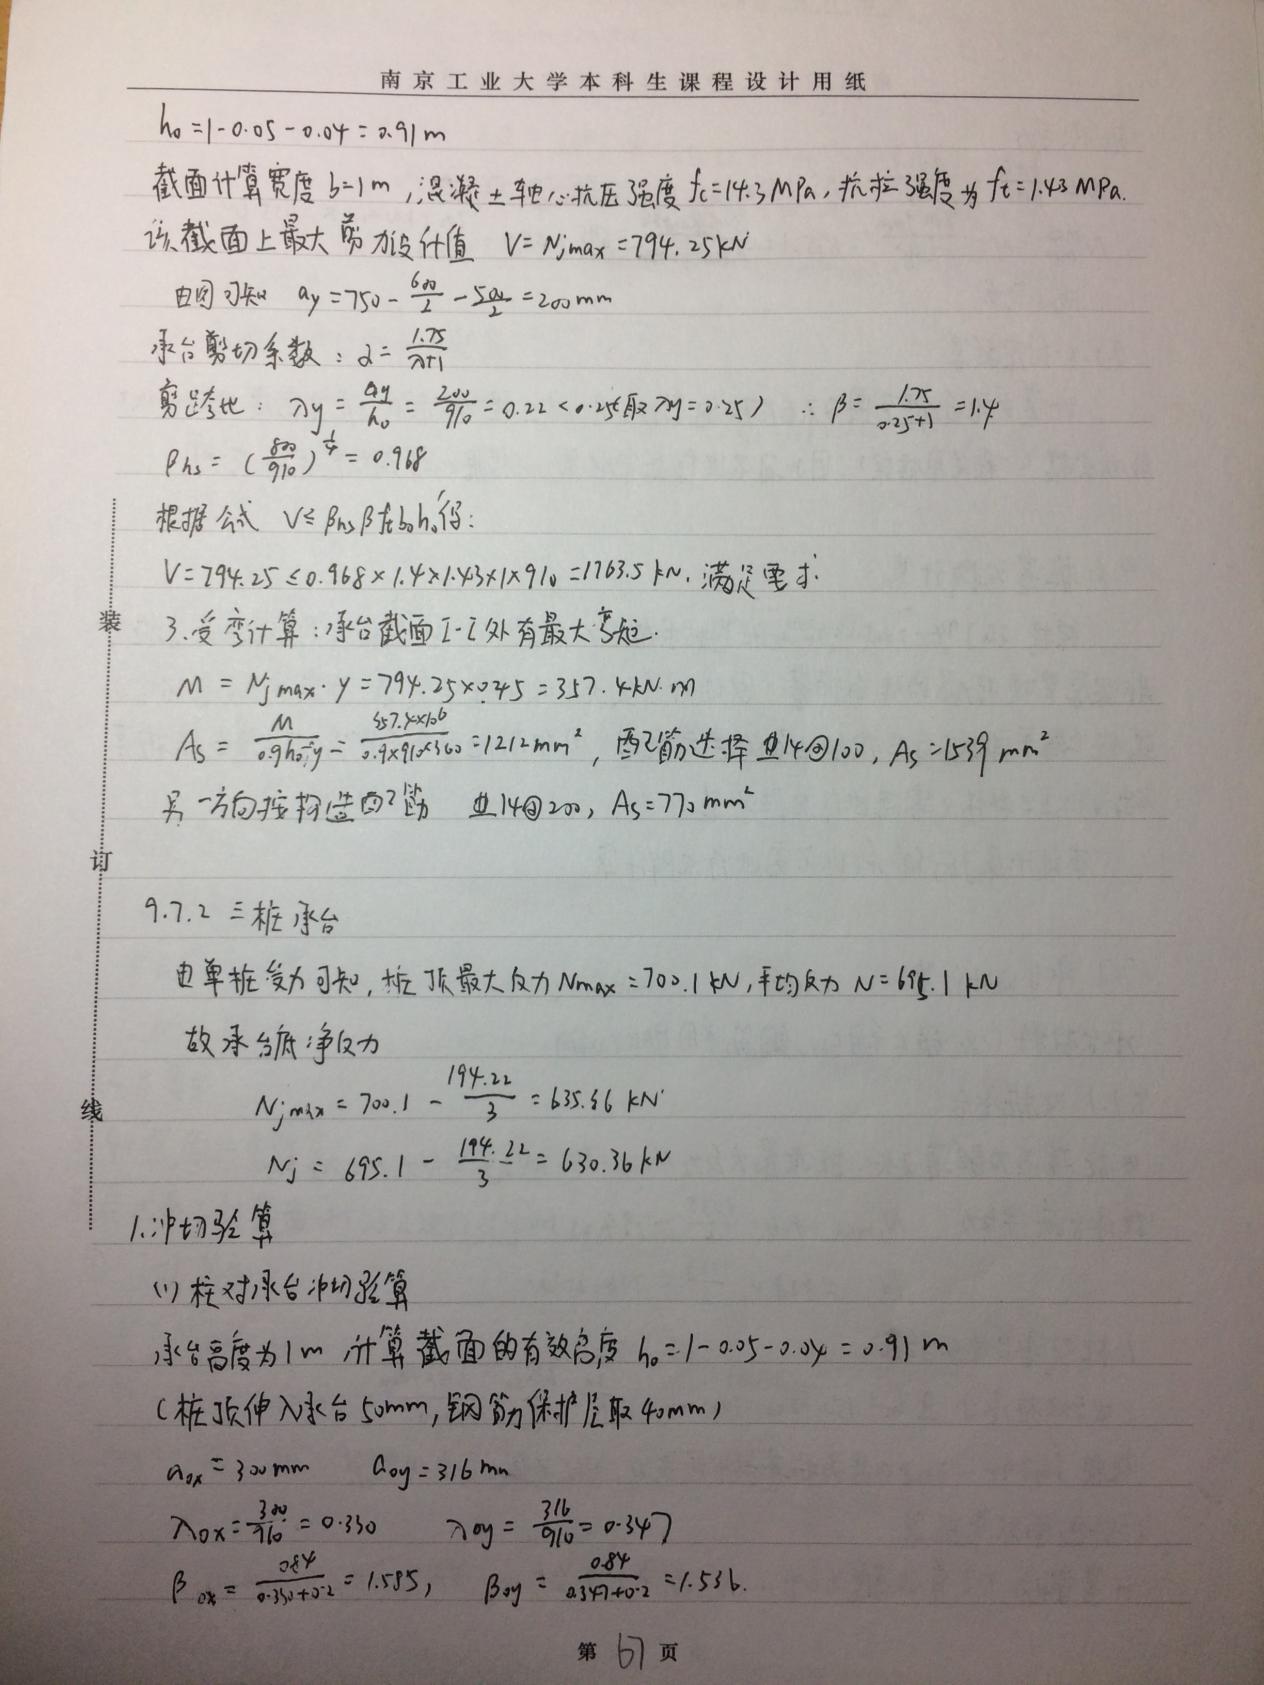 南京工业大学本科生课程设计用纸
h₀=1-0.05-0.04=0.91m
截面计算宽度b=1m,混凝土轴心抗压强度fc=14.3MPa,抗拉强度为ft=1.43MPa.
该截面上最大剪力设计值 V=Njmax=794.25kN
由图可知 ay=750-600/2-500/2=200mm
承台剪切系数:α=1.75/(λ+1)
剪跨比:λy=ay/h₀=200/910=0.22<0.25(取λy=0.25) ∴β=1.75/(0.25+1)=1.4
βhs=(800/910)^(1/4)=0.968
根据公式 V≤βhsβftb₀h₀得:
V=794.25≤0.968×1.4×1.43×1×910=1763.5kN.满足要求
3.受弯计算:承台截面I-I处有最大弯矩.
M=Njmax·y=794.25×0.45=357.4kN·m
As=M/(0.9h₀fy)=357.4×10⁶/(0.9×910×360)=1212mm²,配筋选择 14@100,As=1539mm²
另一方向按构造配筋 14@200,As=770mm²
9.7.2 三桩承台
由单桩受力可知,桩顶最大反力Nmax=700.1kN,平均反力N=695.1kN
故承台底净反力
Njmax=700.1-194.22/3=635.36kN
Nj=695.1-194.22/3=630.36kN
1.冲切验算
(1)柱对承台冲切验算
承台高度为1m,计算截面的有效高度h₀=1-0.05-0.04=0.91m
(桩顶伸入承台50mm,钢筋保护层取40mm)
a₀x=300mm a₀y=316mm
λ₀x=300/910=0.330 λ₀y=316/910=0.347
β₀x=0.84/(0.330+0.2)=1.585, β₀y=0.84/(0.347+0.2)=1.536.
第67页
装
订
线